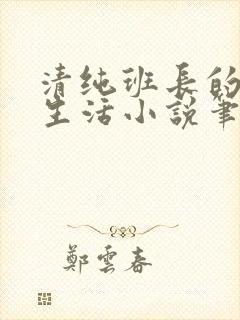 清纯班長的
生活小説筆
鄭雲春